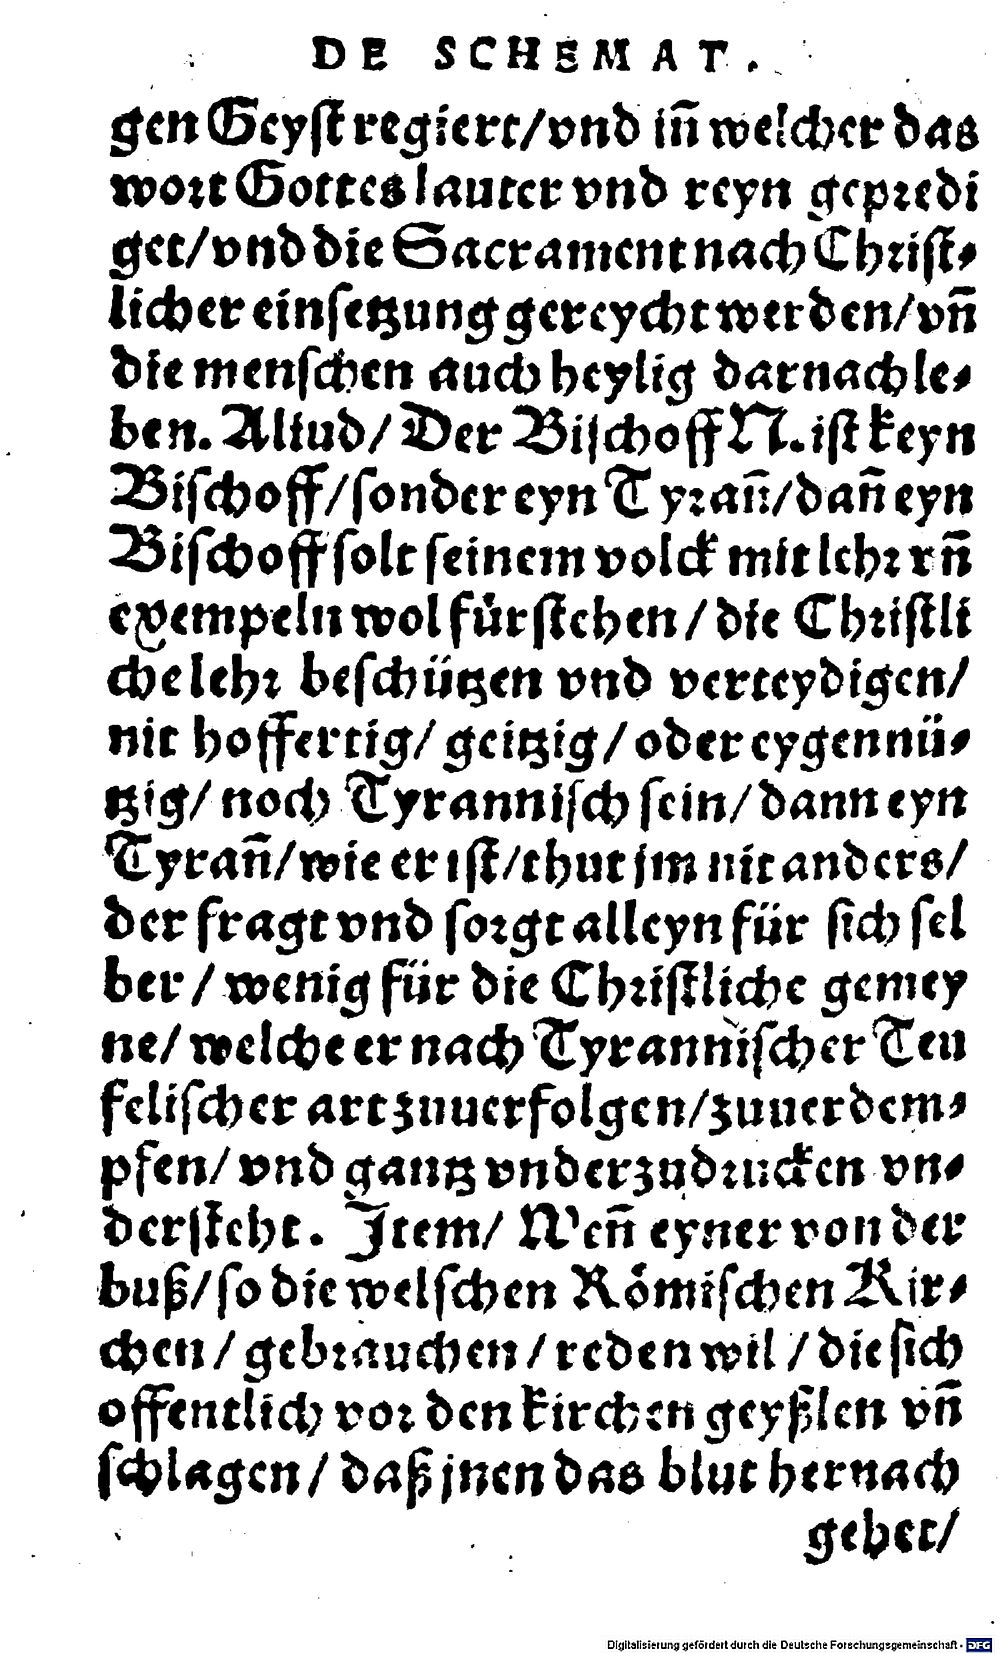 DE SCHEMAT.
gen Geyst regiert/vnd iñ welcher das
wort Gottes lauter vnd reyn gepredi
get/vnd die Sacrament nach Christ-
licher einsetzung gereycht werden/vñ
die menschen auch heylig darnach le-
ben. Aliud/ Der Bischoff N. ist keyn
Bischoff/sonder eyn Tyrañ/dañ eyn
Bischoff solt seinem volck mit lehr vñ
exempeln wol fürstehen/die Christli
che lehr beschützen vnd verteydigen/
nit hoffertig/ geitzig/oder eygennü-
tzig/ noch Tyrannisch sein/dann eyn
Tyrañ/wie er ist/thut jm nit anders/
der fragt vnd sorgt alleyn für sich sel
ber/ wenig für die Christliche gemey
ne/ welche er nach Tyrannischer Teu
felischer art zuuerfolgen/zuuerdem-
pfen/ vnd gantz vnderzudrucken vn-
dersteht. Item/ Weñ eyner von der
buß/so die welschen Römischen Kir-
chen/ gebrauchen/reden wil/die sich
offentlich vor den kirchen geyßlen vñ
schlagen/ daß jnen das blut hernach
gehet/
Digitalisierung gefördert durch die Deutsche Forschungsgemeinschaft - DFG